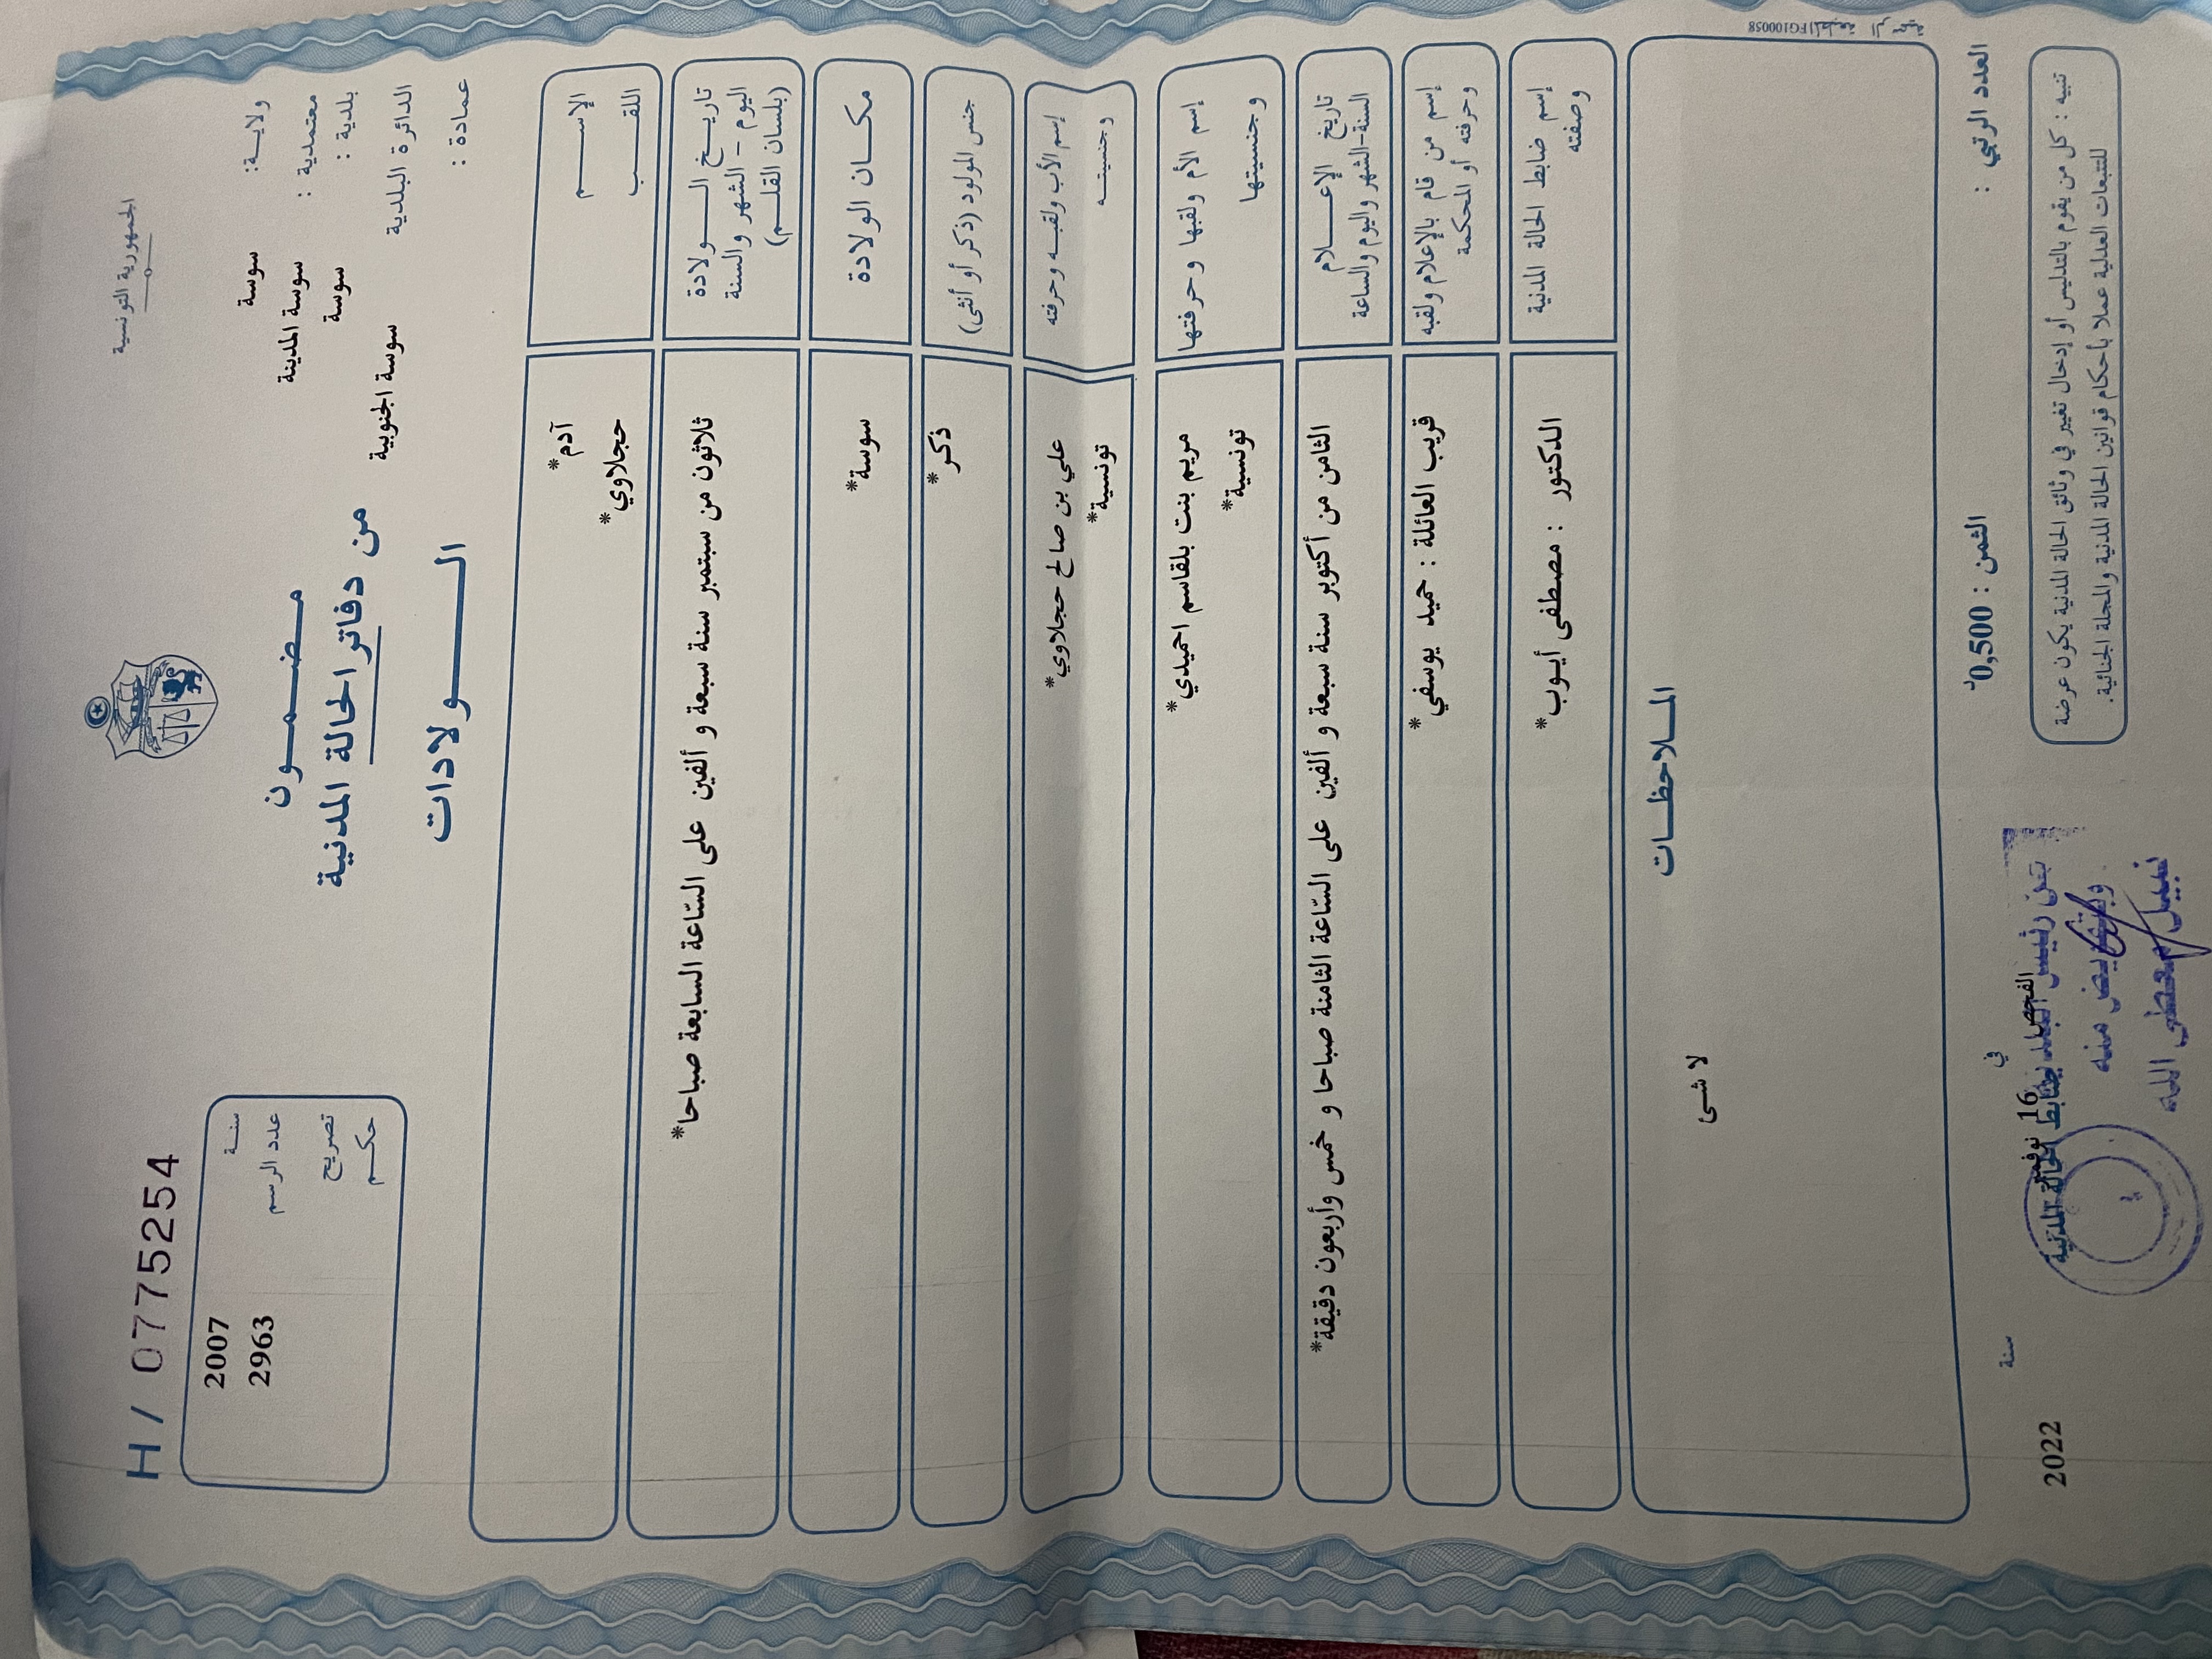 الجمهورية التونسية
H / 0775254
ولاية: سوسة
معتمدية : سوسة المدينة
بلدية : سوسة
الدائرة البلدية سوسة الجنوبية
عمادة :
سنة 2007
عدد الرسم 2963
تصريح
حكم
مضمون
من دفاتر الحالة المدنية
الولادات
الإسم آدم*
اللقب حجلاوي*
تاريخ الولادة
اليوم - الشهر والسنة
(بلسان القلم)
ثلاثون من سبتمبر سنة سبعة و ألفين على السّاعة السابعة صباحا*
مكان الولادة سوسة*
جنس المولود (ذكر أو أنثى) ذكر*
إسم الأب ولقبه وحرفته علي بن صالح حجلاوي*
وجنسيته تونسية*
إسم الأم ولقبها وحرفتها مريم بنت بلقاسم احميدي*
وجنسيتها تونسية*
تاريخ الإعلام
السنة-الشهر واليوم والساعة
الثامن من أكتوبر سنة سبعة و ألفين على السّاعة الثامنة صباحا و خمس وأربعون دقيقة*
إسم من قام بالإعلام ولقبه
وحرفته أو المحكمة
قريب العائلة : حميد يوسفي*
إسم ضابط الحالة المدنية
وصفته
الدكتور : مصطفى أيوب*
الملاحظات
لا شئ
FG100058 المطبعة الرسمية
العدد الرتبي :
الثمن : 0,500د
الفحص في 16 نوفمبر سنة 2022
ضابط الحالة المدنية
عن رئيس البلدية
وبتفويض منه
نبيل معطى الله
تنبيه : كل من يقوم بالتدليس أو إدخال تغيير في وثائق الحالة المدنية يكون عرضة
للتتبعات العدلية عملا بأحكام قوانين الحالة المدنية والمجلة الجنائية.